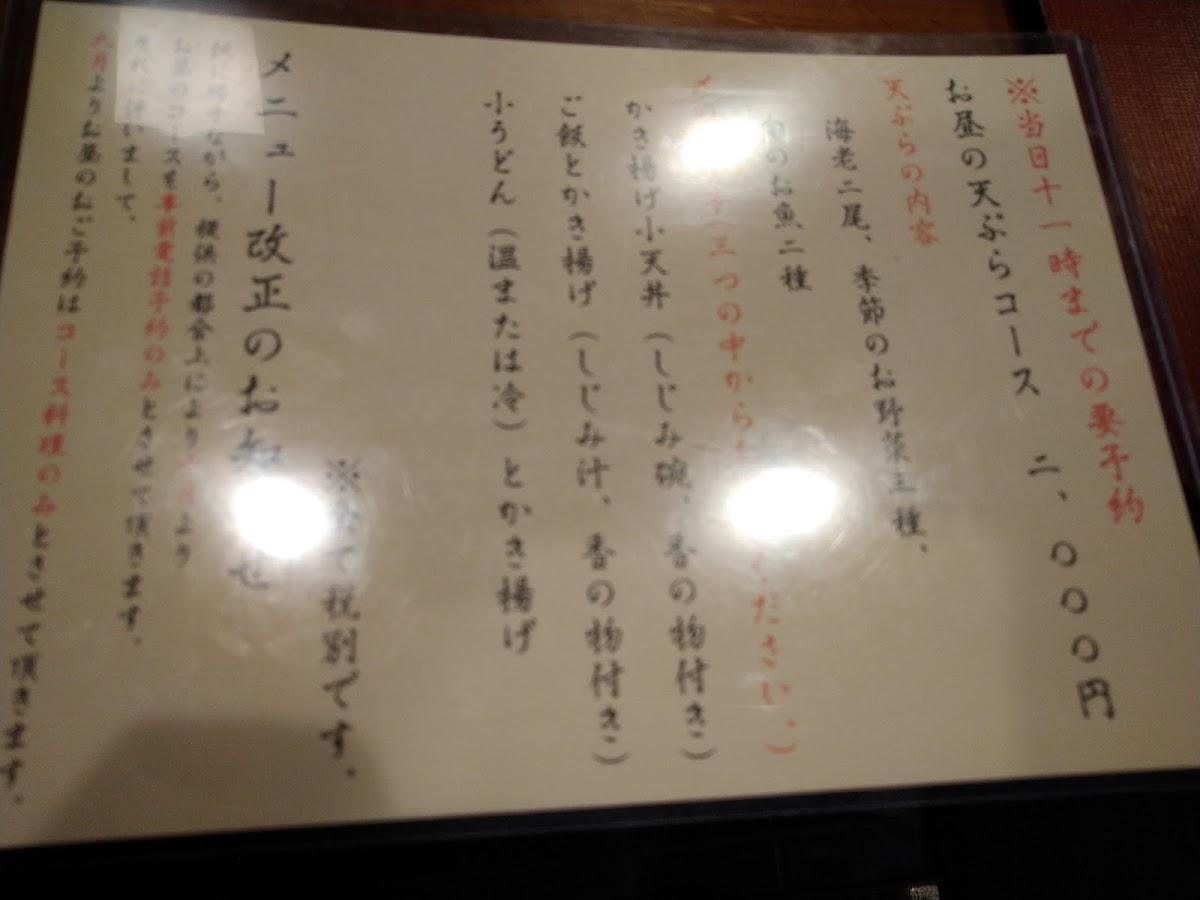 ※当日十一時までの要予約
お昼の天ぷらコース 二、〇〇〇円
天ぷらの内容
海老二尾、季節のお野菜三種、
旬のお魚二種
(三つの中からください。)
かき揚げ小天丼(しじみ碗、香の物付き)
ご飯とかき揚げ(しじみ汁、香の物付き)
小うどん(温または冷)とかき揚げ
※全て税別です。
メニュー改正のお知せ
ながら、提供の都合上によりより
お昼のコースを事前電話予約のみとさせて頂きます。
まして、
九月よりお昼のご予約はコース料理のみとさせて頂きます。